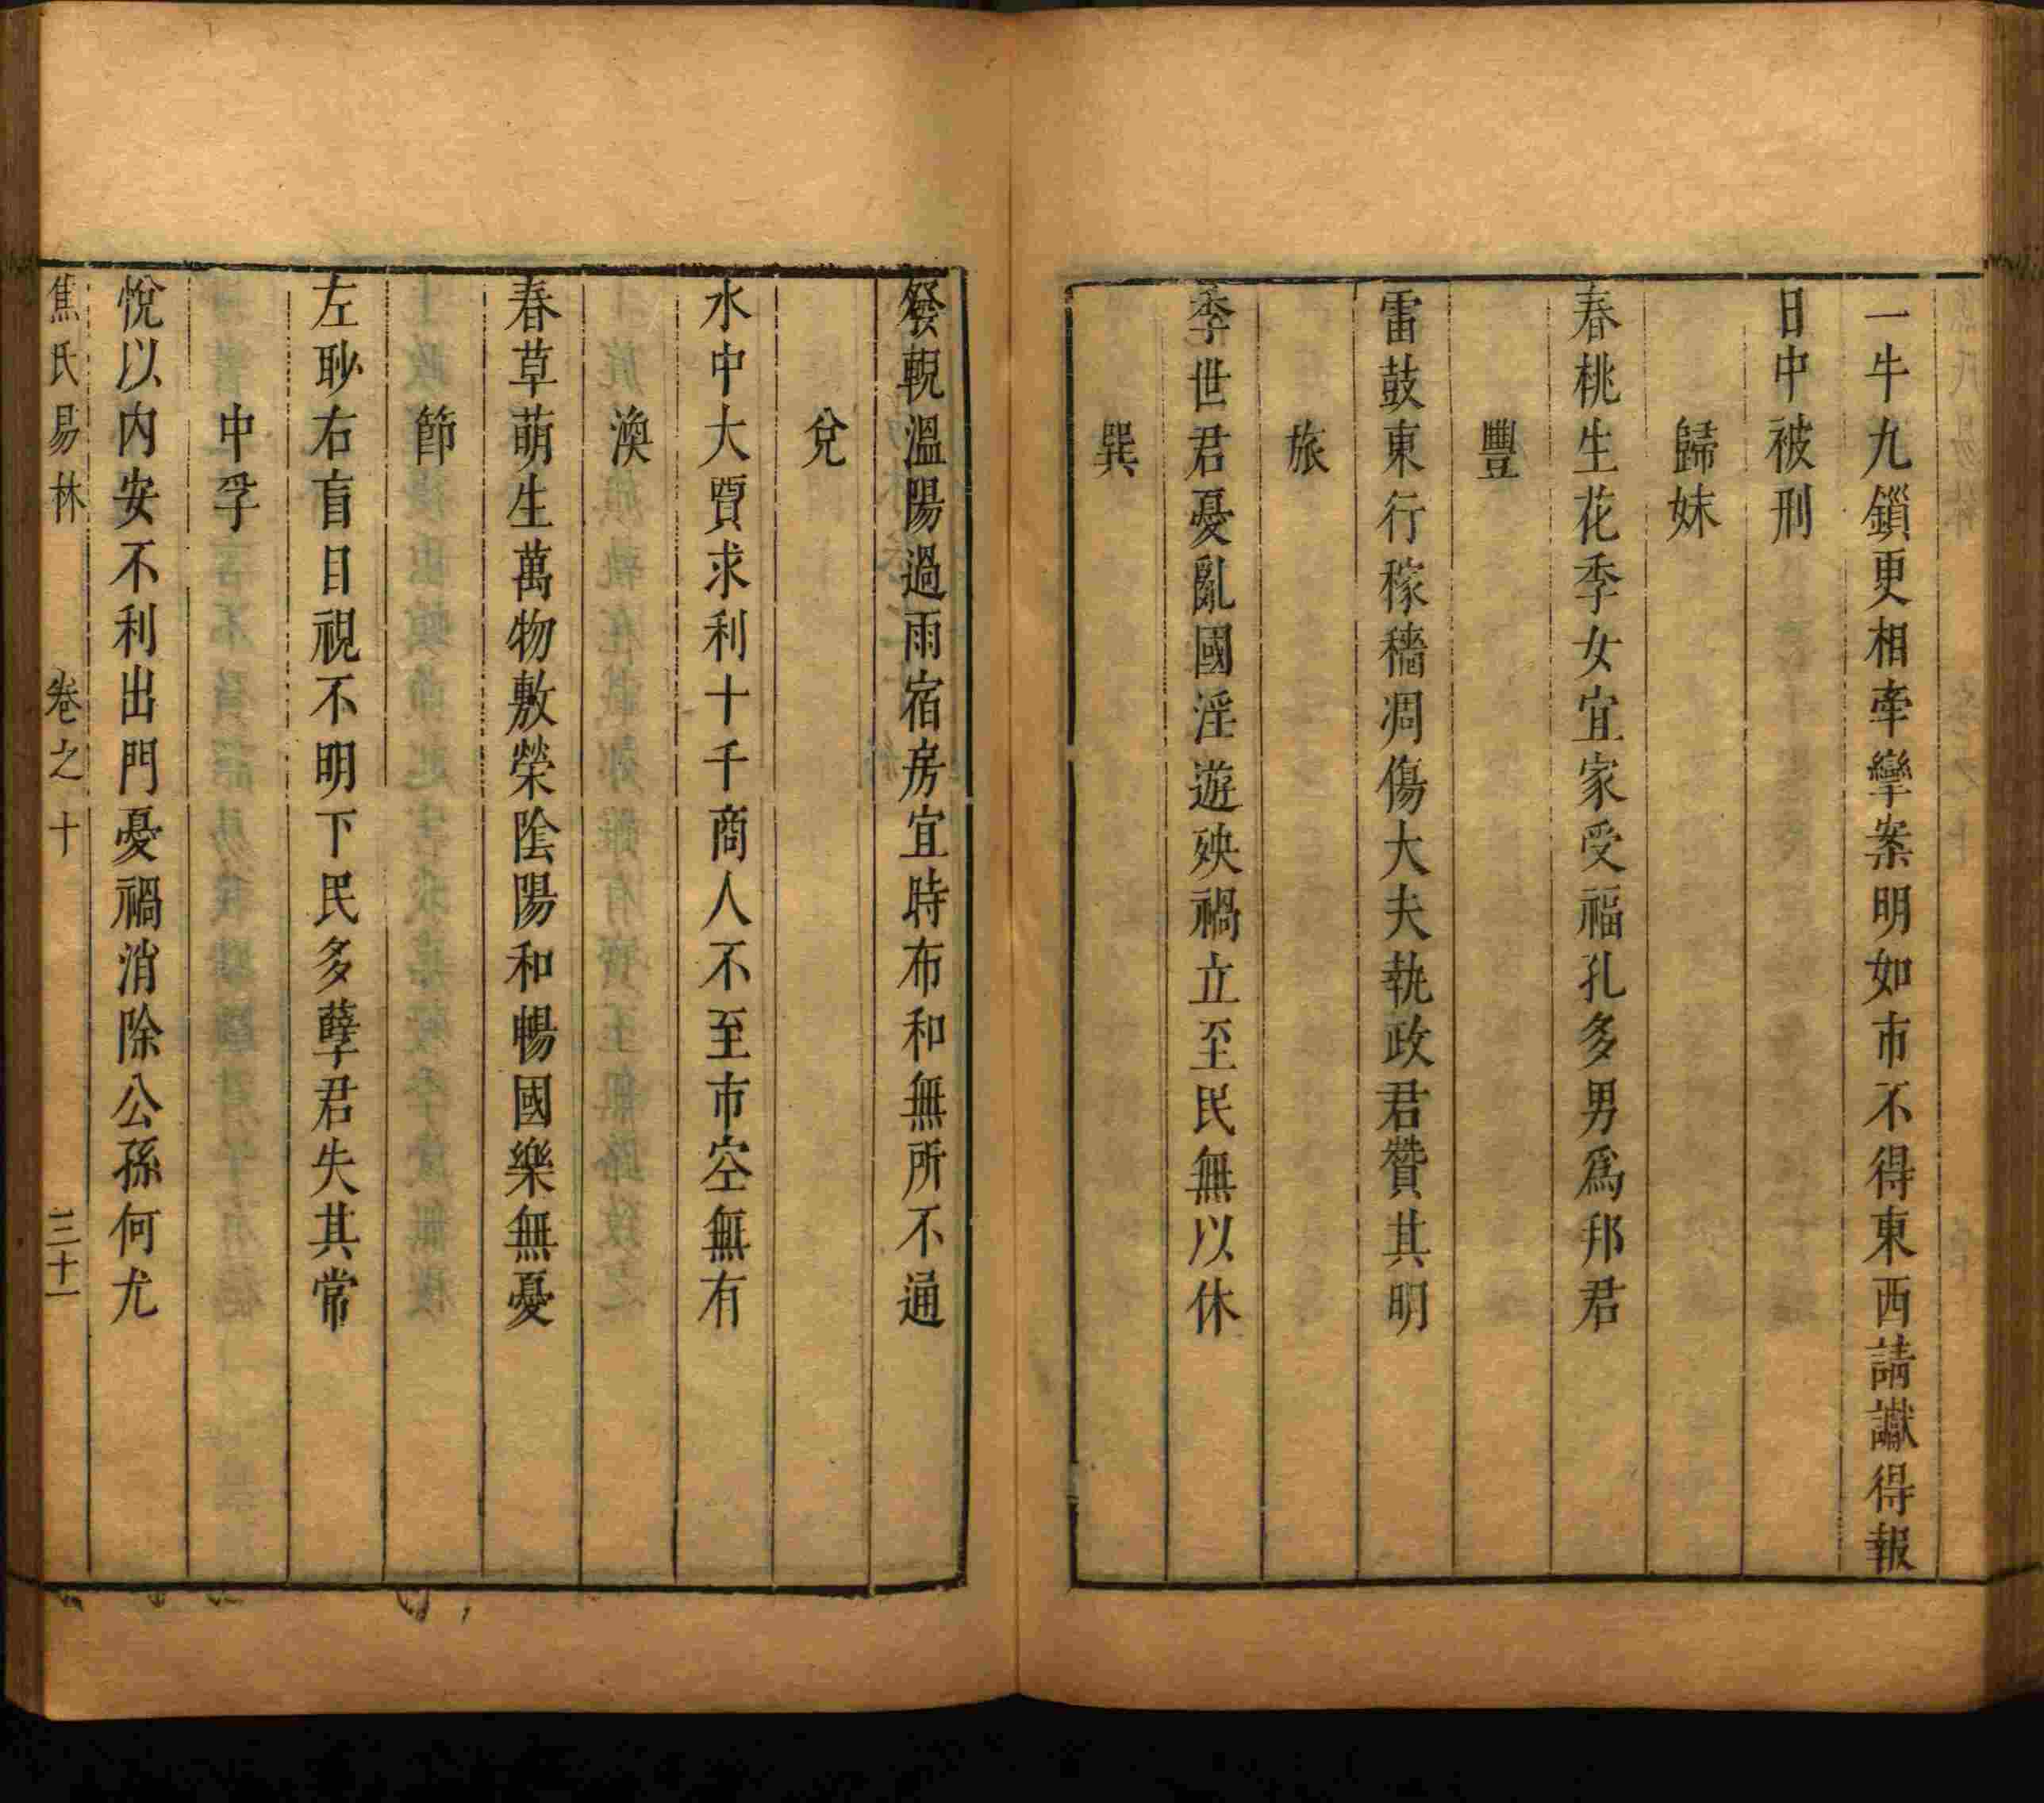 一牛九鎖更相牽攣案明如市不得東西請讞得報
日中被刑
歸妹
春桃生花季女宜家受福孔多男爲邦君
豐
雷鼓東行稼穡凋傷大夫執政君贊其明
旅
季世君憂亂國淫遊殃禍立至民無以休
巽
發輗溫陽過雨宿房宜時布和無所不通
兌
水中大賈求利十千商人不至市空無有
渙
春草萌生萬物敷榮陰陽和暢國樂無憂
節
左眇右盲目視不明下民多孽君失其常
中孚
悅以內安不利出門憂禍消除公孫何尤
焦氏易林 卷之十 三十一